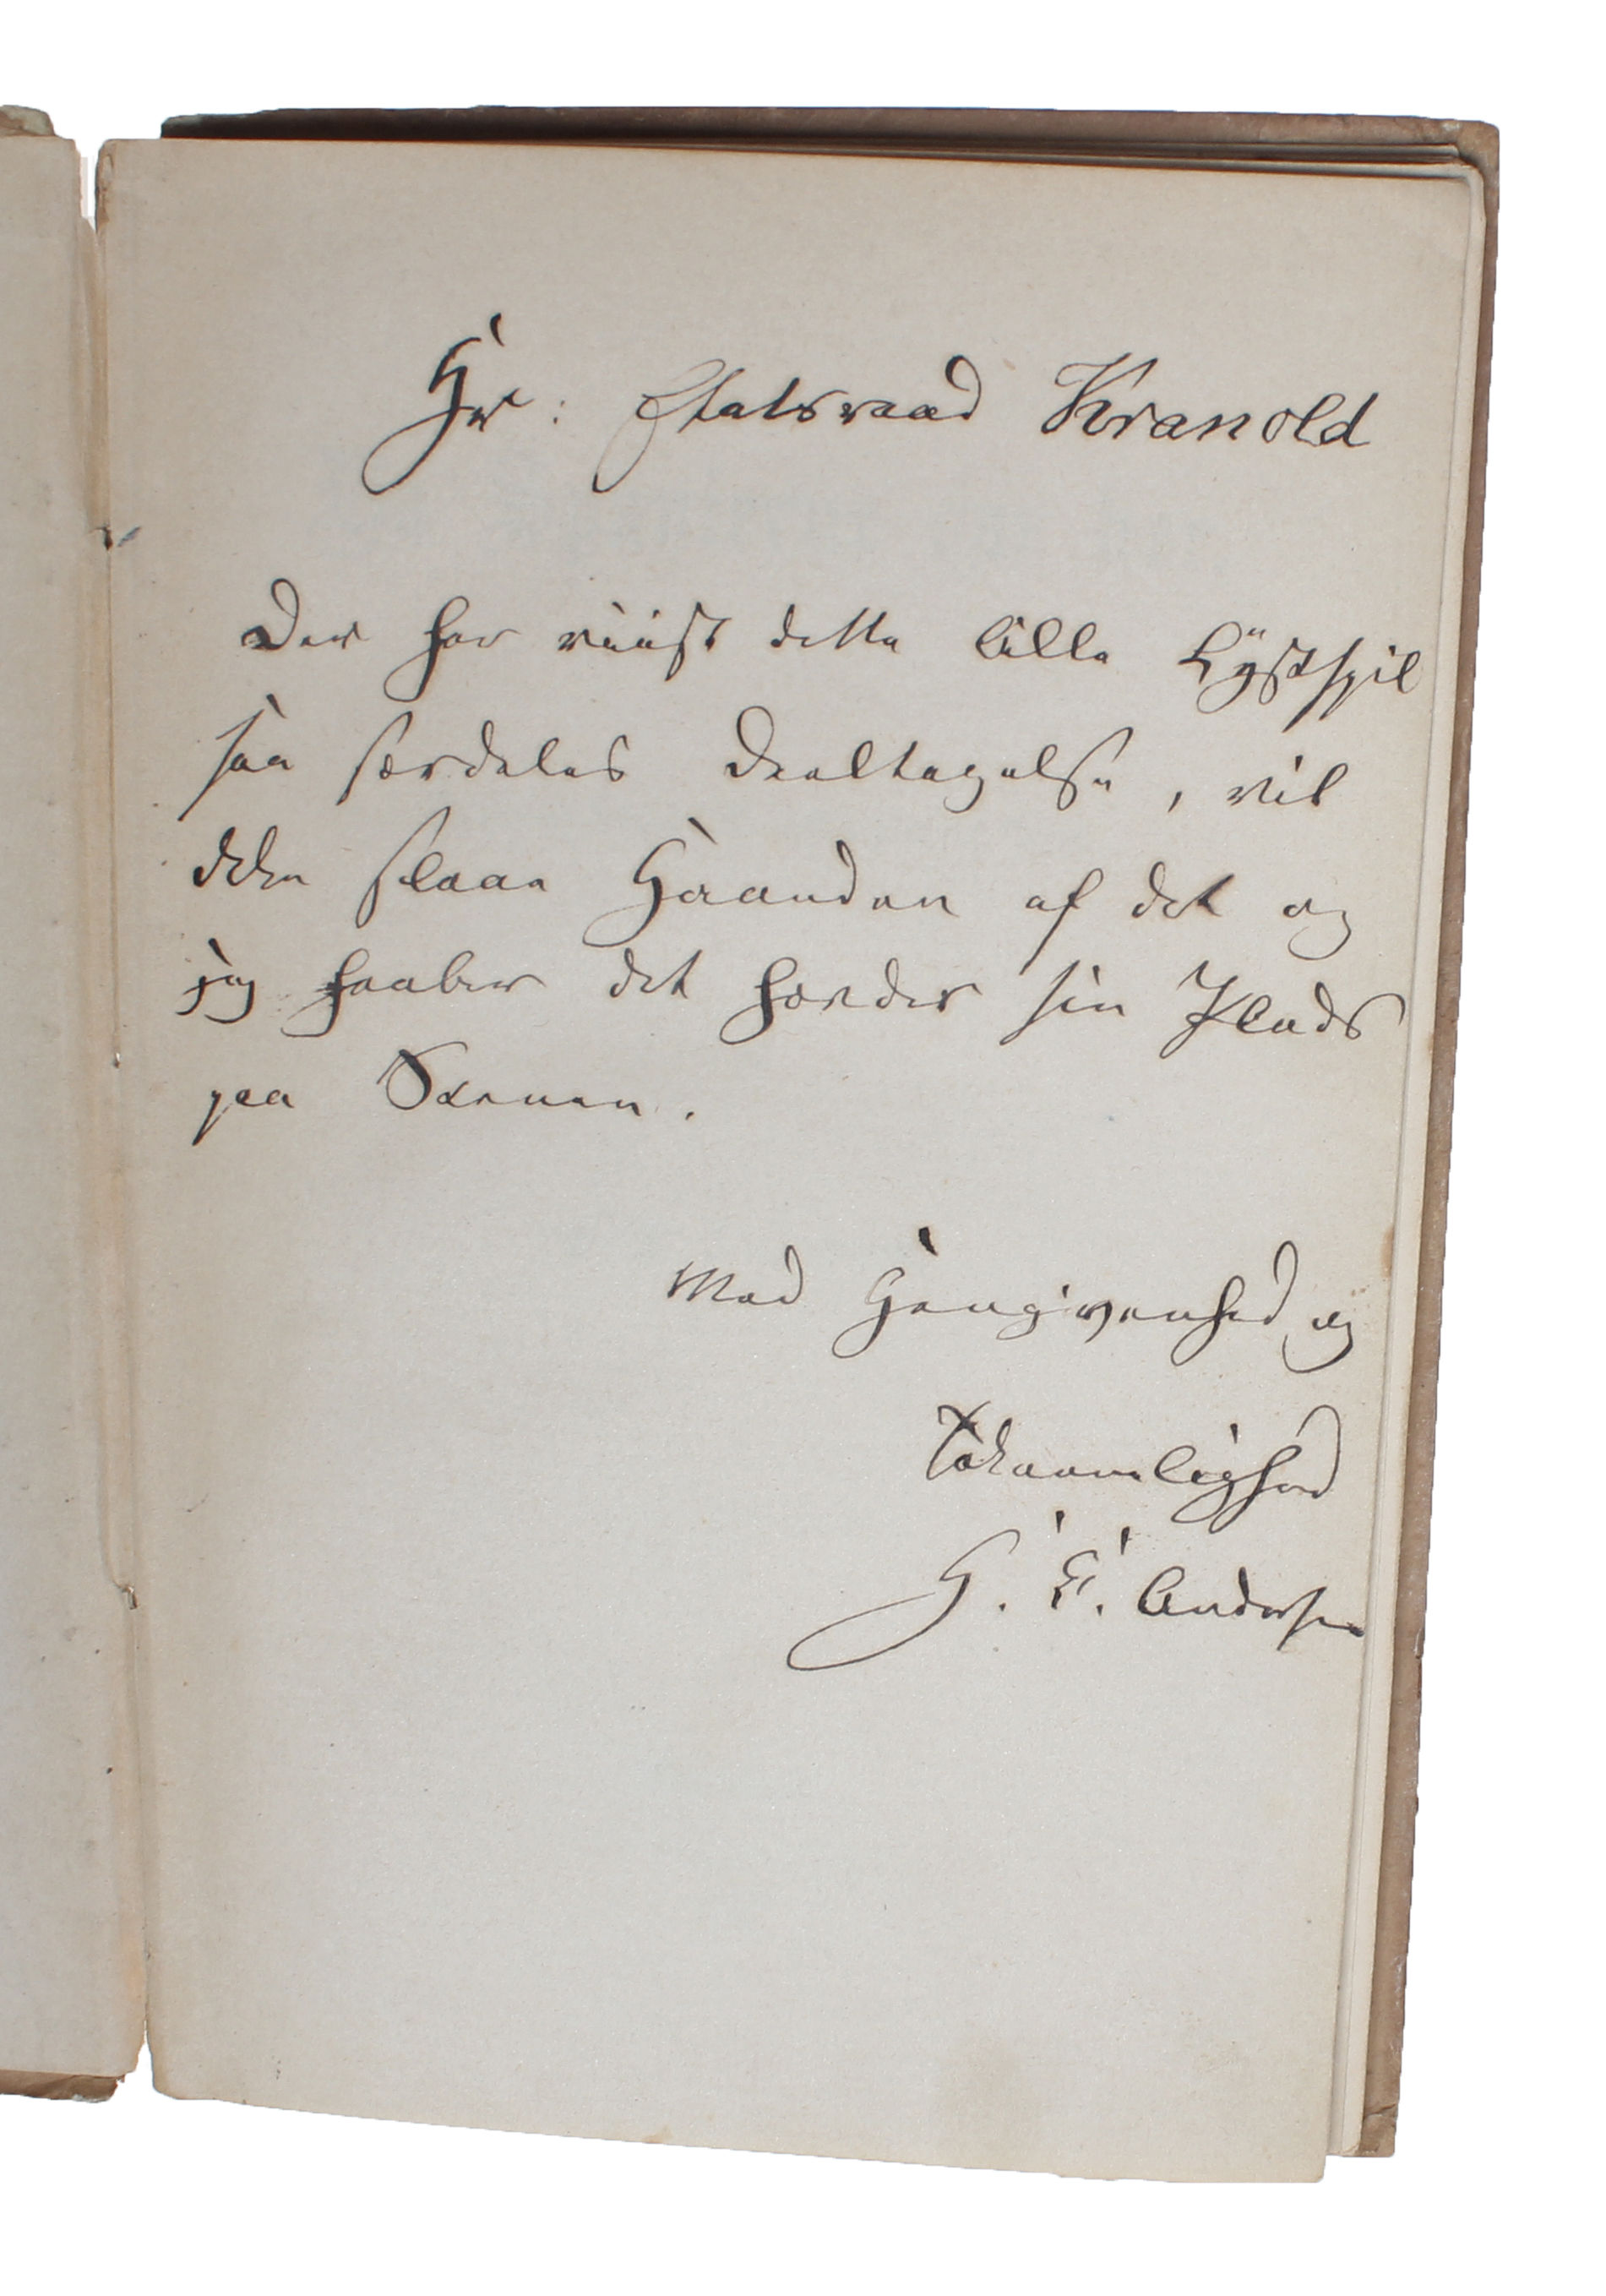 Hr: Etatsraad Kranold
Der har viist dette lille Lÿstspil
saa særdeles Deeltagelse, vil
ikke slaae Haanden af det og
jeg haaber det hævder sin Plads
paa Scenen.
Med Hengivenhed og
Taknemlighed
H. C. Andersen